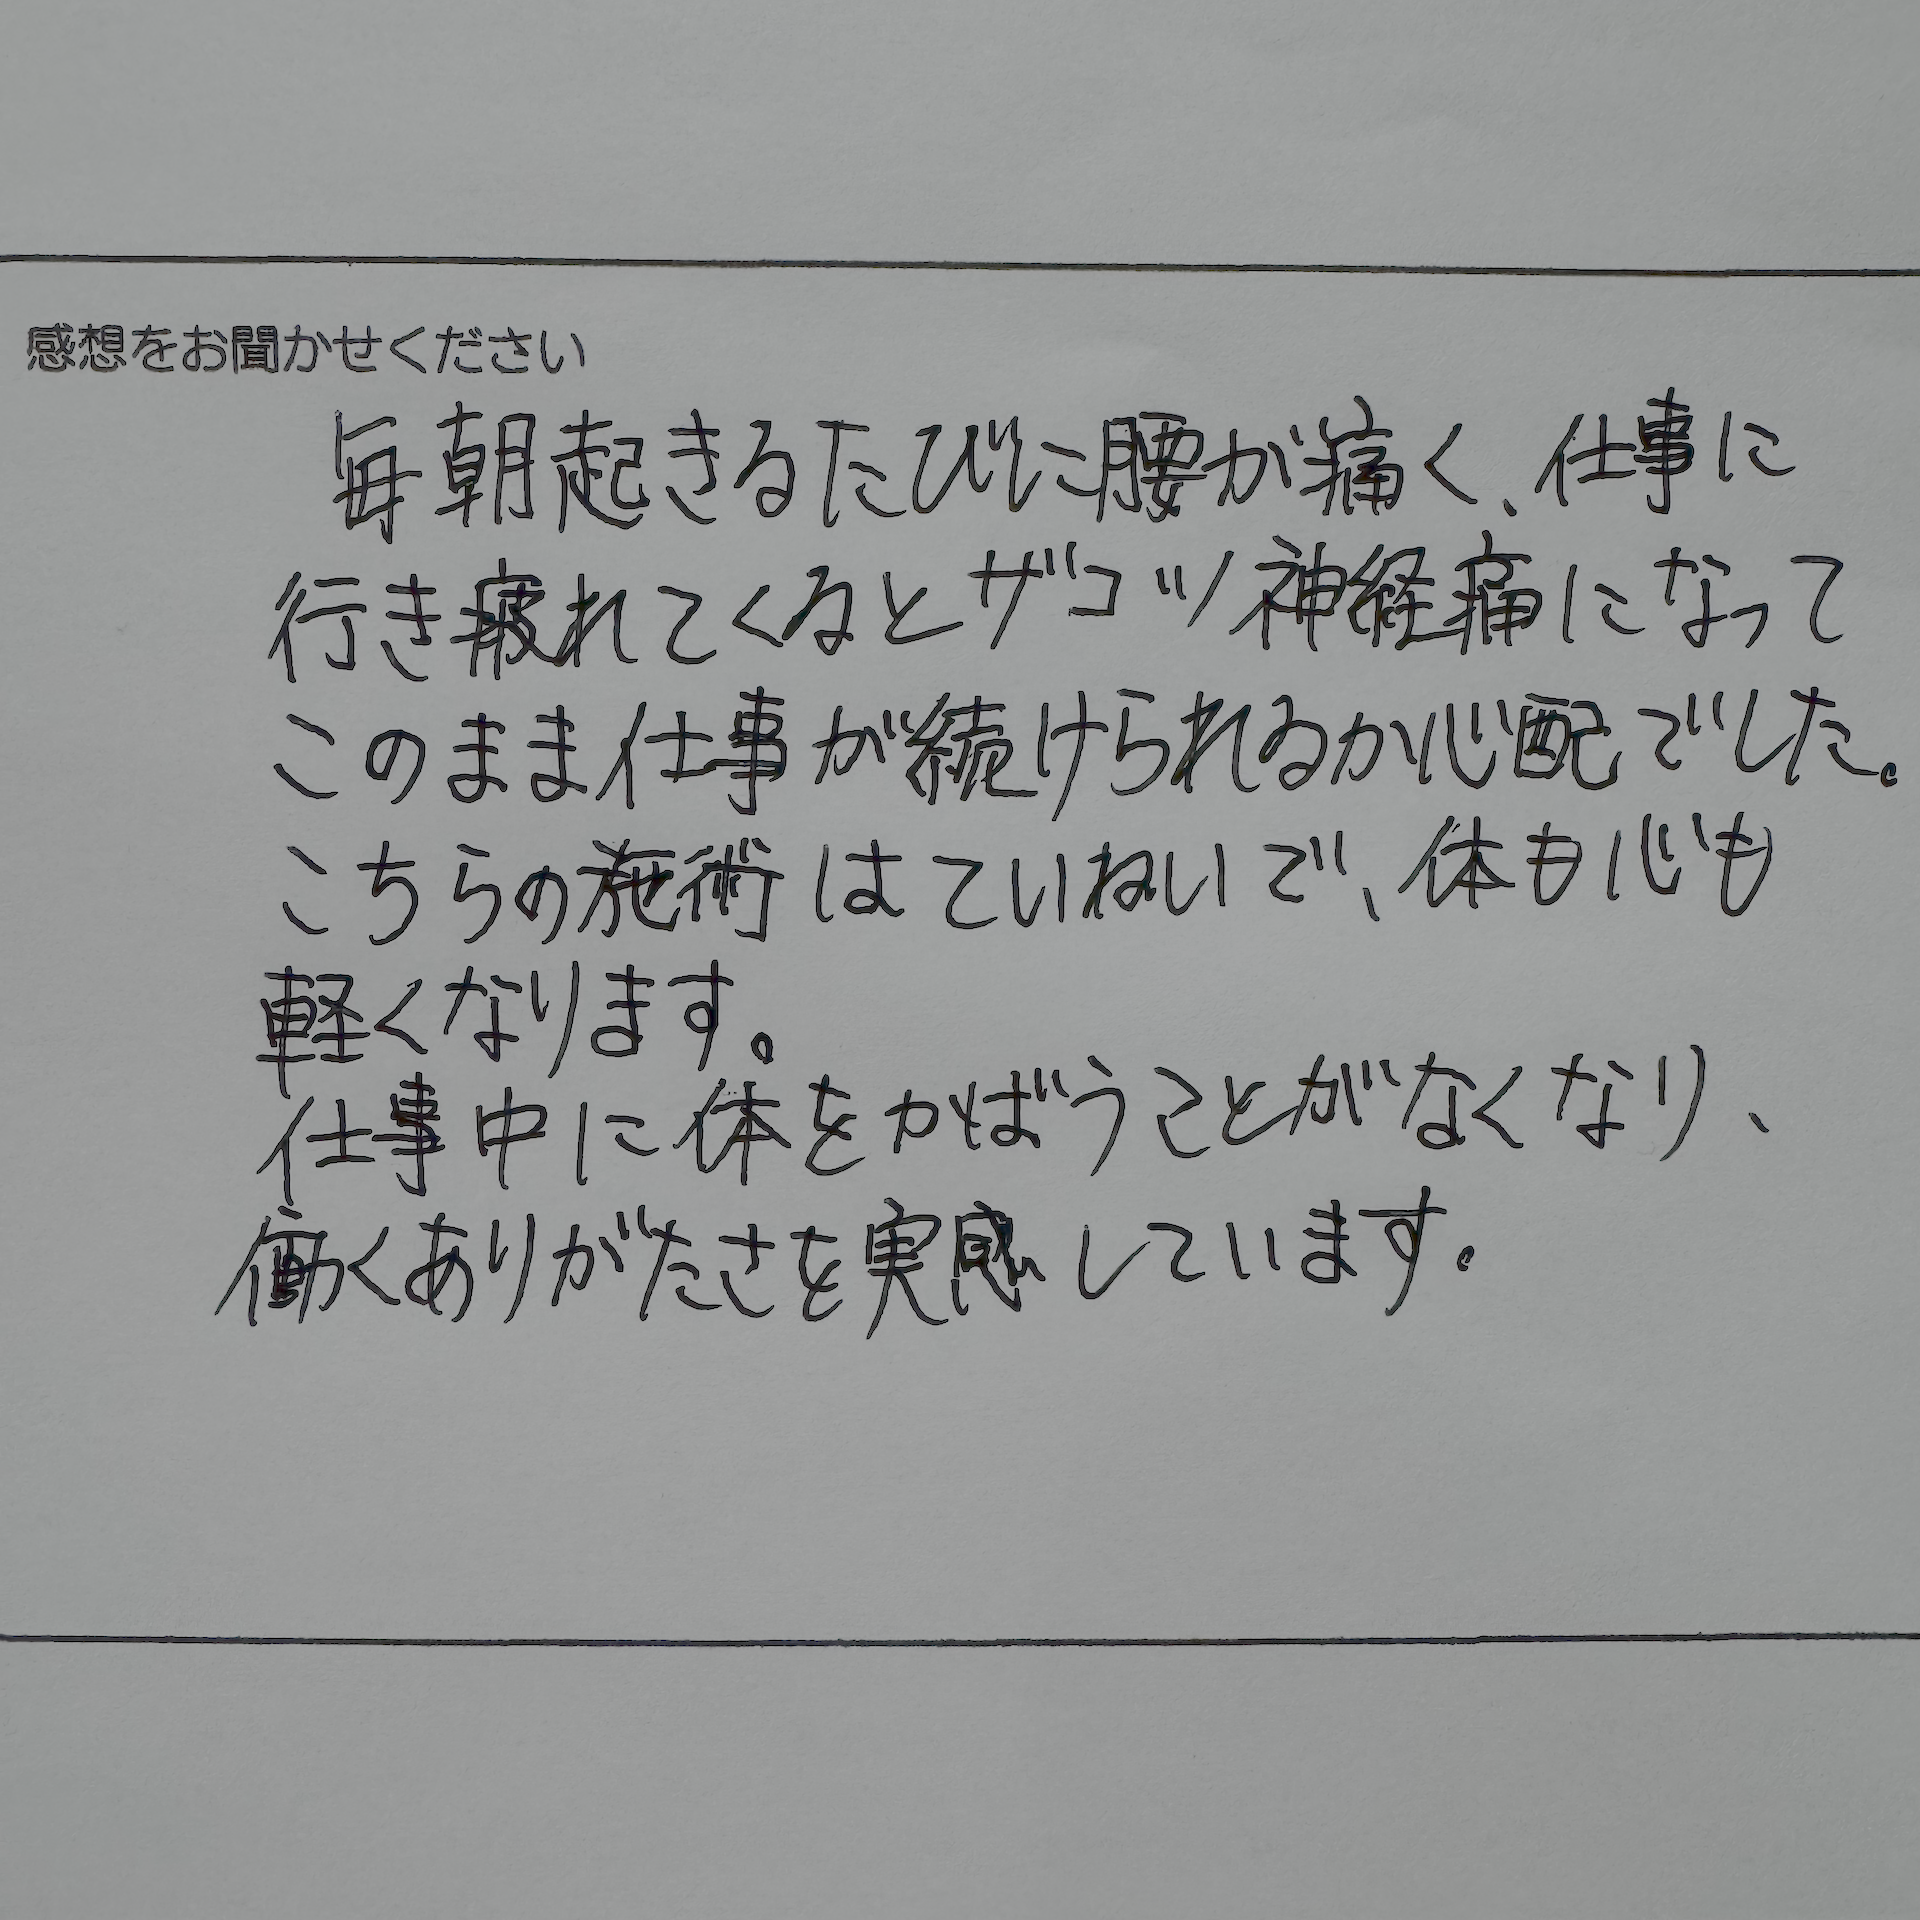 感想をお聞かせください
毎朝起きるたびに腰が痛く、仕事に
行き疲れてくるとザコツ神経痛になって
このまま仕事が続けられるか心配でした。
こちらの施術はていねいで、体も心も
軽くなります。
仕事中に体をかばうことがなくなり、
働くありがたさを実感しています。